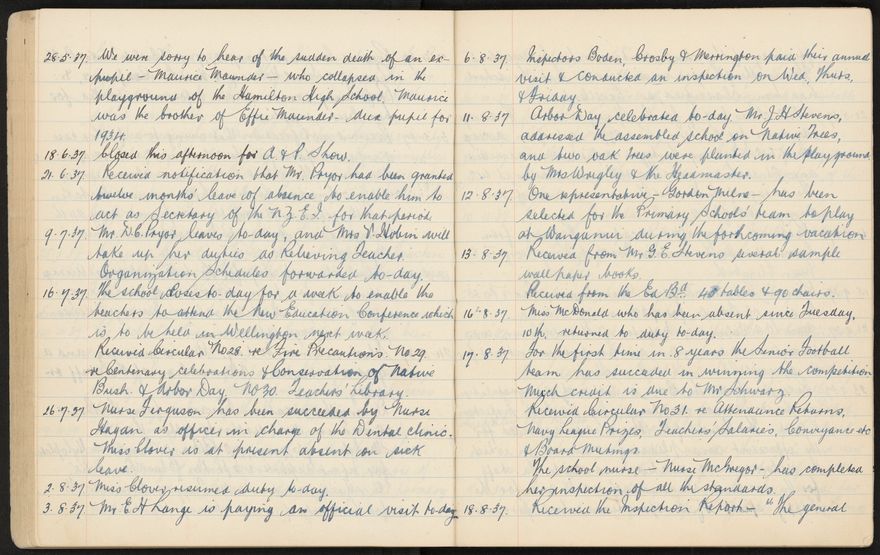 28.5.37 We were sorry to hear of the sudden death of an ex-
pupil – Maurice Maunder – who collapsed in the
playground of the Hamilton High School. Maurice
was the brother of Effie Maunder. Dux pupil for
1934.
18.6.37 Closed this afternoon for A & P. Show.
21.6.37 Received notification that Mr. Pryor had been granted
twelve months' leave of absence to enable him to
act as Secretary of the N.Z.E.I. for that period.
9.7.37. Mr. D.C. Pryor leaves to-day, and Mrs V. Hobin will
take up her duties as Relieving Teacher.
Organization Schedules forwarded to-day.
16.7.37. The school closes to-day for a week to enable the
teachers to attend the New Education Conference which
is to be held in Wellington next week.
Received Circular No 28. re Fire Precautions. No 29.
re Centenary celebrations & Conservation of Native
Bush. & Arbor Day. No 30. Teachers' Library.
26.7.37 Nurse Ferguson has been succeeded by Nurse
Hagan as officer in charge of the Dental clinic.
Miss Clover is at present absent on sick
leave.
2.8.37 Miss Clover resumed duty to-day.
3.8.37 Mr E H Lange is paying an official visit to-day
6.8.37 Inspectors Boden, Crosby & Merrington paid their annual
visit & conducted an inspection on Wed, Thurs,
& Friday.
11.8.37 Arbor Day celebrated to-day. Mr. J.H Stevens,
addressed the assembled school on Native Trees,
and two oak trees were planted in the playground
by Mrs Wrigley & the Headmaster.
12.8.37 One representative – Gordon Milne – has been
selected for the Primary Schools' team to play
at Wanganui during the forthcoming vacation
13.8.37 Received from Mr G.E. Stevens several sample
wall paper books.
Received from the Ed Bd. 45 tables & 90 chairs.
16.8.37 Miss McDonald who has been absent since Tuesday,
10th, returned to duty to-day.
17.8.37 For the first time in 8 years the Senior Football
team has succeeded in winning the competition
Much credit is due to Mr Schwarz.
Received Circular No 31. re Attendance Returns,
Navy League Prizes, Teachers' Salaries, Conveyance etc
& Board Meetings.
The school nurse – Nurse McGregor – has completed
her inspection of all the standards.
18.8.37. Received the Inspection Report – "The general